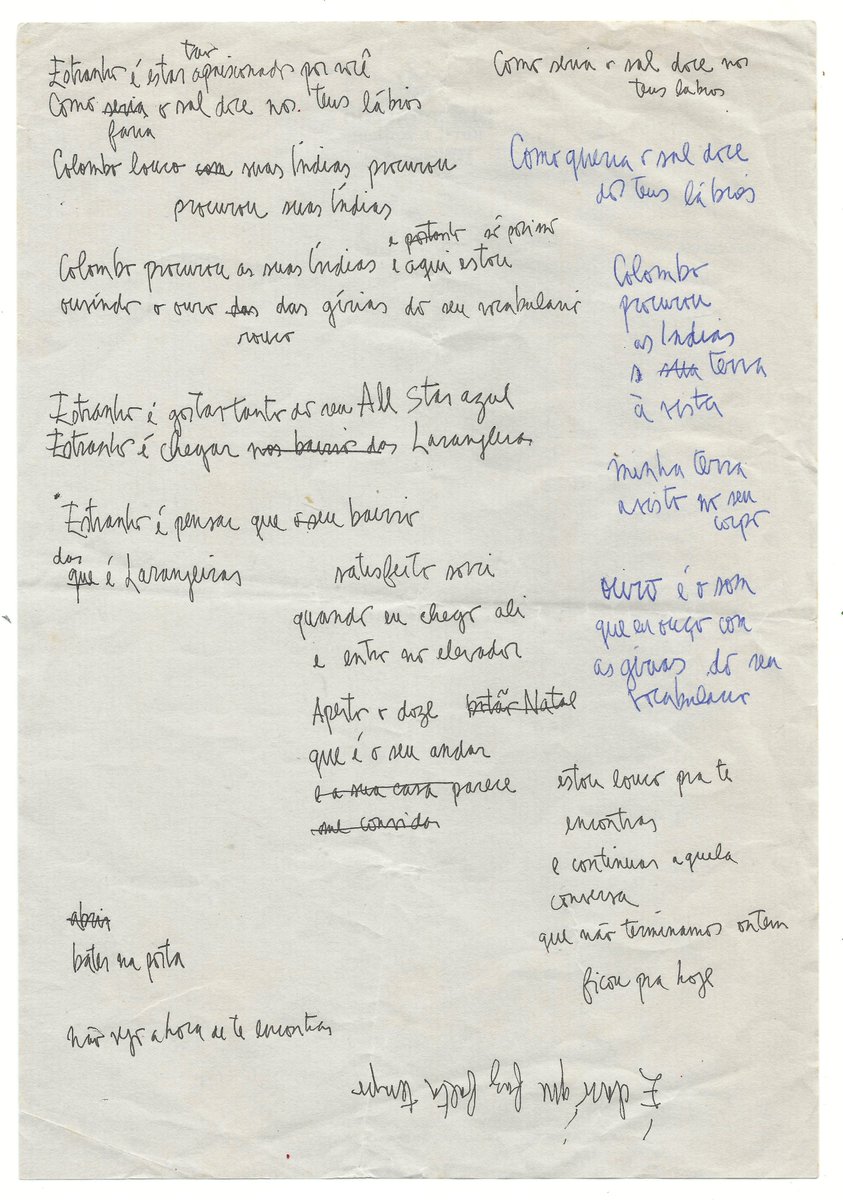 tão
Estranho é estar aprisionado por você
Como seria o sal doce nos teus lábios
faria
Colombo louco com suas Índias procurou
procurou suas Índias
e portanto só por isso
Colombo procurou as suas Índias e aqui estou
ouvindo o ouro das das gírias do seu vocabulario
rouco
Estranho é gostar tanto do seu All Star azul
Estranho é chegar nos bairro das Laranjeiras
Estranho é pensar que o seu bairro
das
que é Laranjeiras
satisfeito sorri
quando eu chego ali
e entro no elevador
Aperto o doze botão Natal
que é o seu andar
e a sua casa parece
me convidar
abrir
bater na porta
não vejo a hora de te encontrar
Como seria o sal doce nos
teus lábios
Como queria o sal doce
dos teus lábios
Colombo
procurou
as Índias
a sua terra
à vista
minha terra
avisto no seu
corpo
ouro é o som
que eu ouço com
as gírias do seu
vocabulario
estou louco pra te
encontrar
e continuar aquela
conversa
que não terminamos ontem
ficou pra hoje
É que faz falta